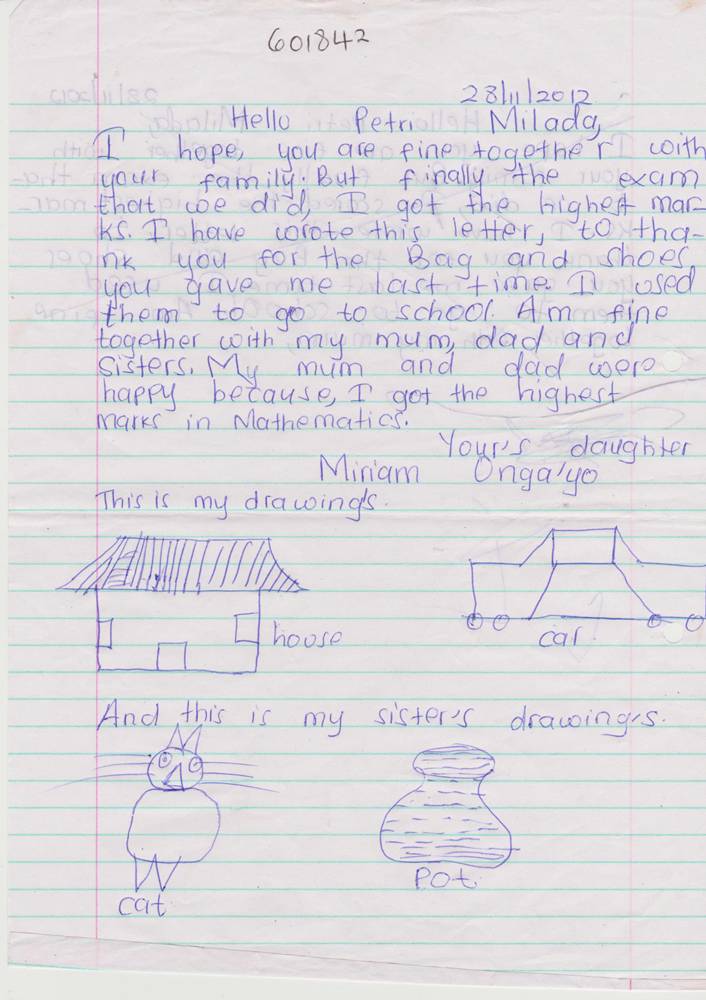 601842
28/11/2012
Hello Petri Milada,
I hope, you are fine together with
your family. But finally the exam
that we did, I got the highest mar-
ks. I have wrote this letter, to tha-
nk you for the Bag and shoes,
you gave me last time. I used
them to go to school. Am fine
together with my mum, dad and
sisters. My mum and dad were
happy because, I got the highest
marks in Mathematics.
Your's daughter
Miriam Onga'yo
This is my drawing's.
house
car
And this is my sister's drawing's.
cat
Pot